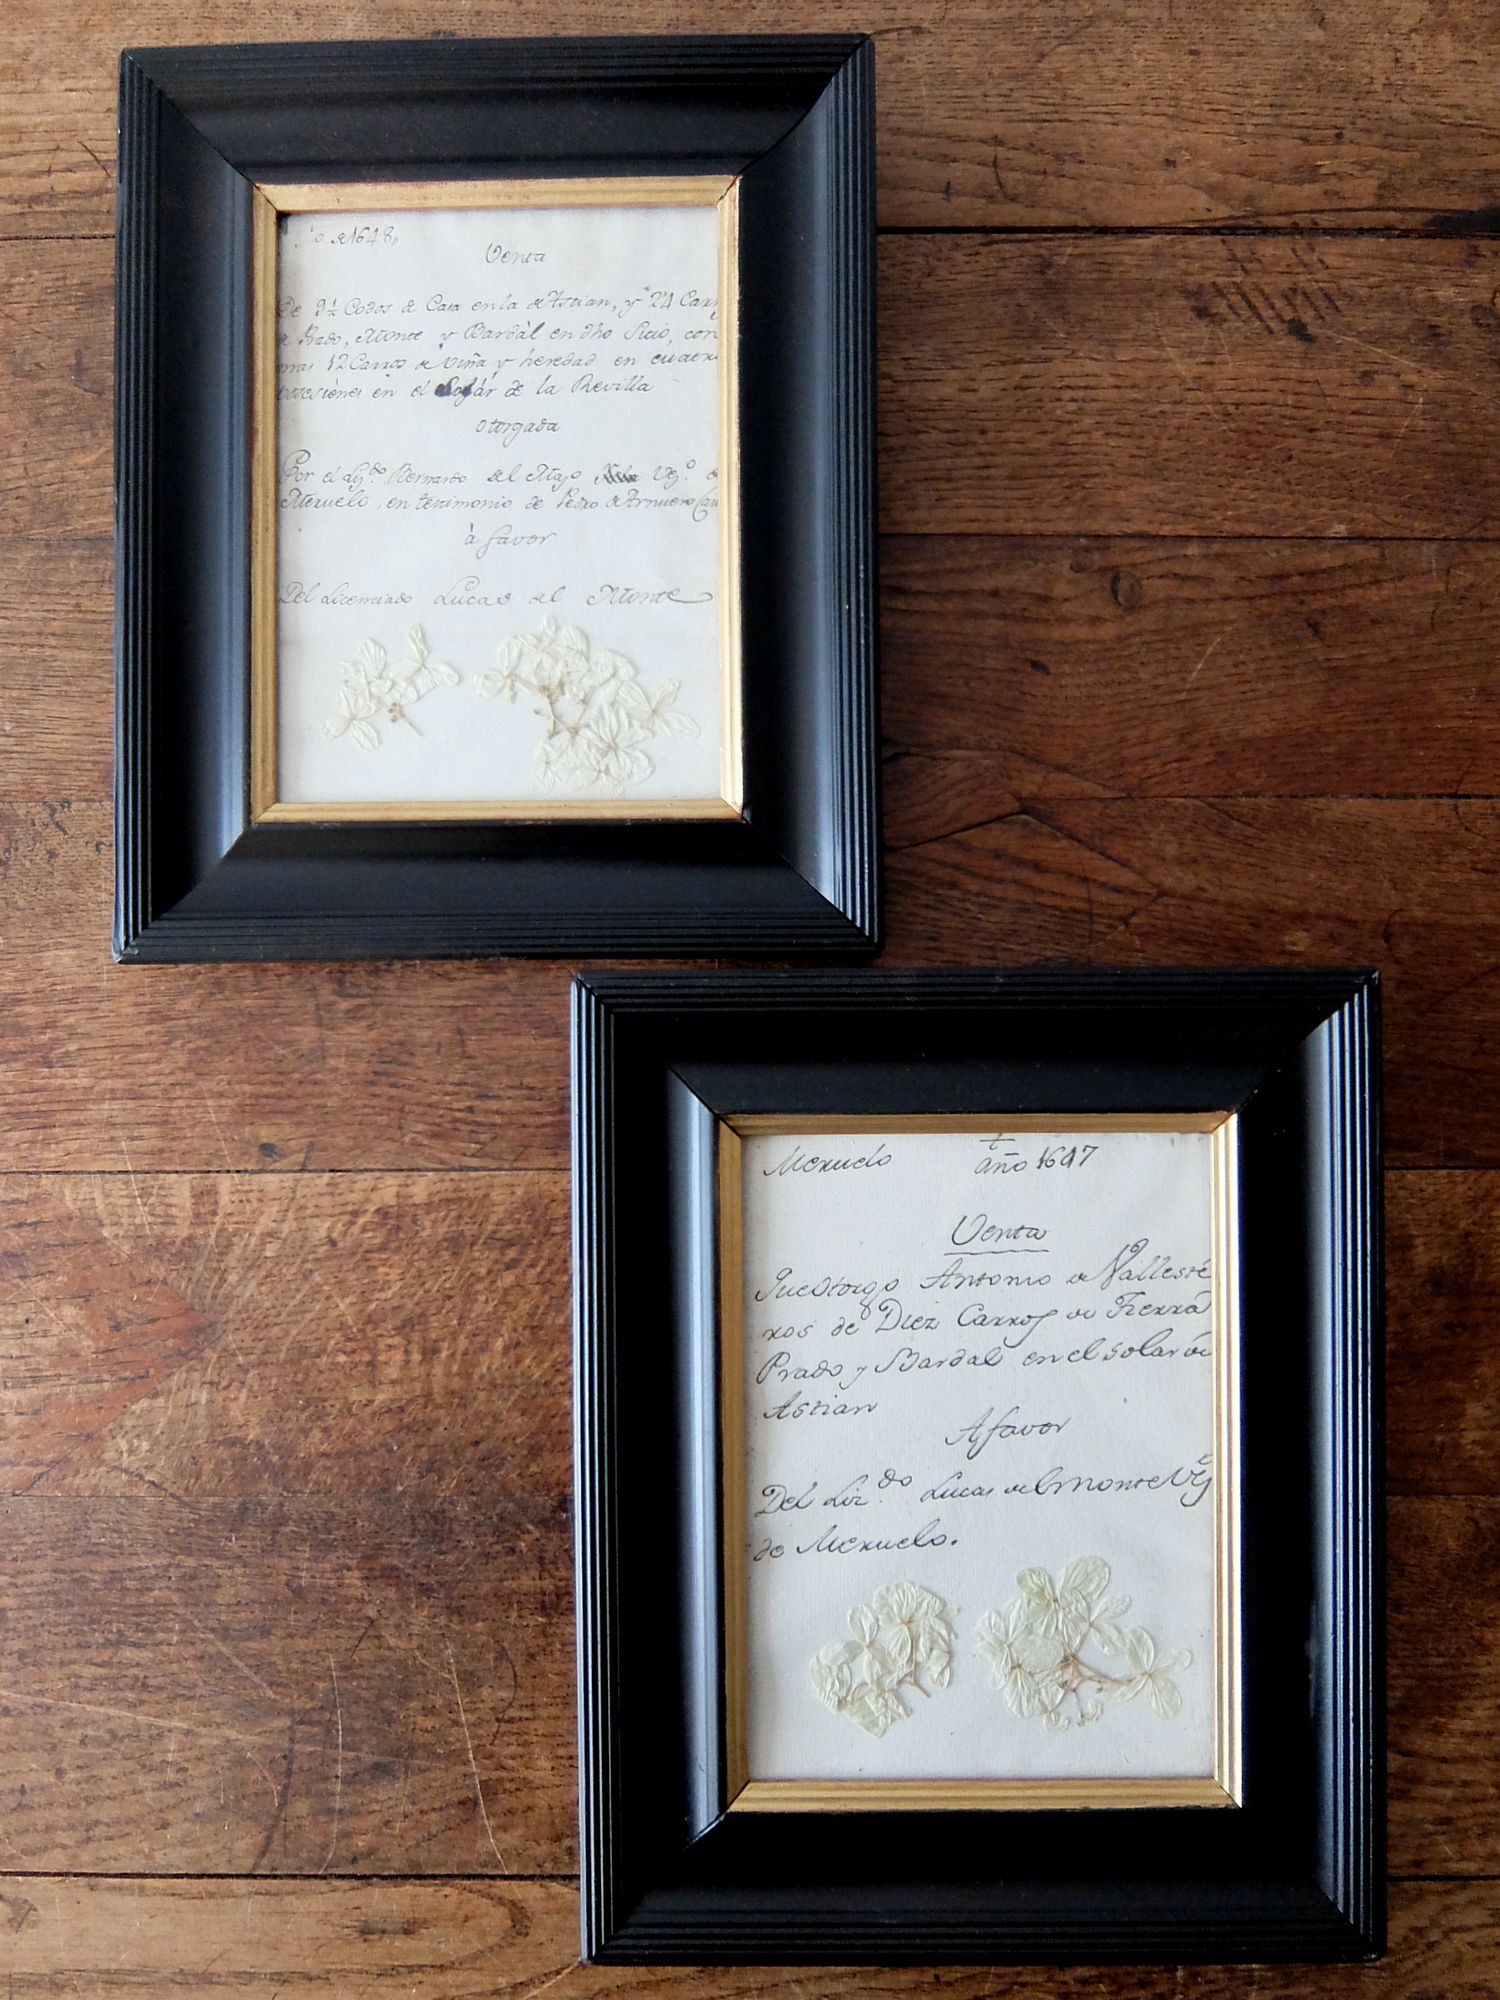 de 1648
Venta
De 9½ Codos de Casa en la de Astian, y 24 Carr
de Prado, Monte y Bardàl en dho Sitio, con
mas 12 Carros de Viña y heredad en cuatro
posesiónes en el Lugár de la Revilla
otorgada
Por el Lizdo Bernardo del Mazo Vº de
Meruelo, en testimonio de Pedro de Arnuero
à favor
Del Licenciado Lucas del Monte
Meruelo año 1647
Venta
Que Otorgo Antonio de Vallesté
ros de Diez Carros de Tierra
Prado y Bardal en el solar de
Astian
A favor
Del Lizdo Lucas del Monte
de Meruelo.